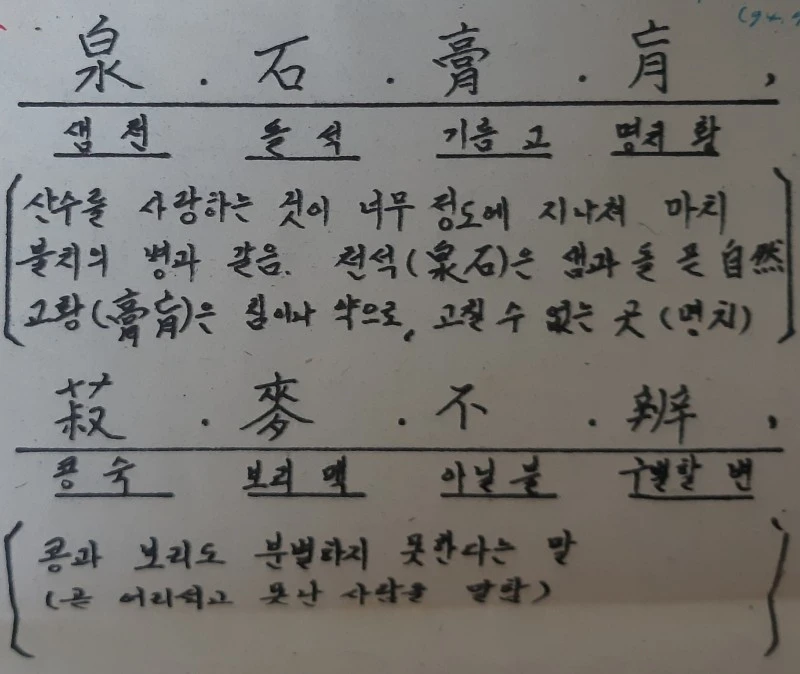 泉 . 石 . 膏 . 肓 ,
샘 천 돌 석 기름 고 명치 황
산수를 사랑하는 것이 너무 정도에 지나쳐 마치
불치의 병과 같음. 천석(泉石)은 샘과 돌 곧 自然
고황(膏肓)은 침이나 약으로, 고칠 수 없는 곳 (명치)
菽 . 麥 . 不 . 辨 ,
콩 숙 보리 맥 아닐 불 구별할 변
콩과 보리도 분별하지 못한다는 말
(곧 어리석고 못난 사람을 말함)